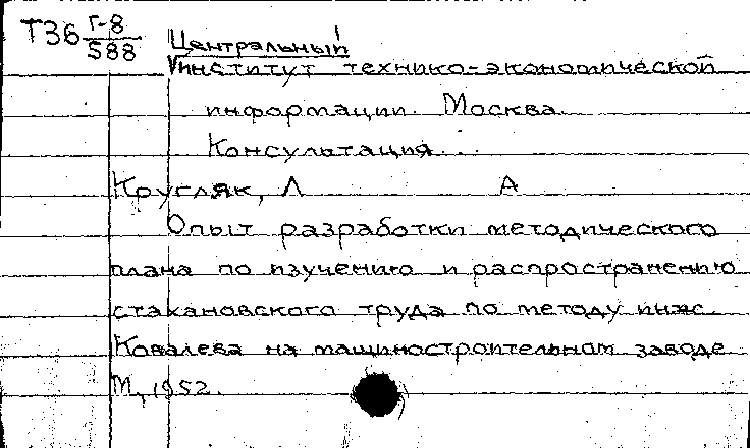 Т36 Г-8/588
Центральный
институт технико-экономической
информации. Москва.
Консультация...
Кругляк, Л А.
Опыт разработки методического
плана по изучению и распространению
стахановского труда по методу инж.
Ковалева на машиностроительном заводе.
М, 1952.